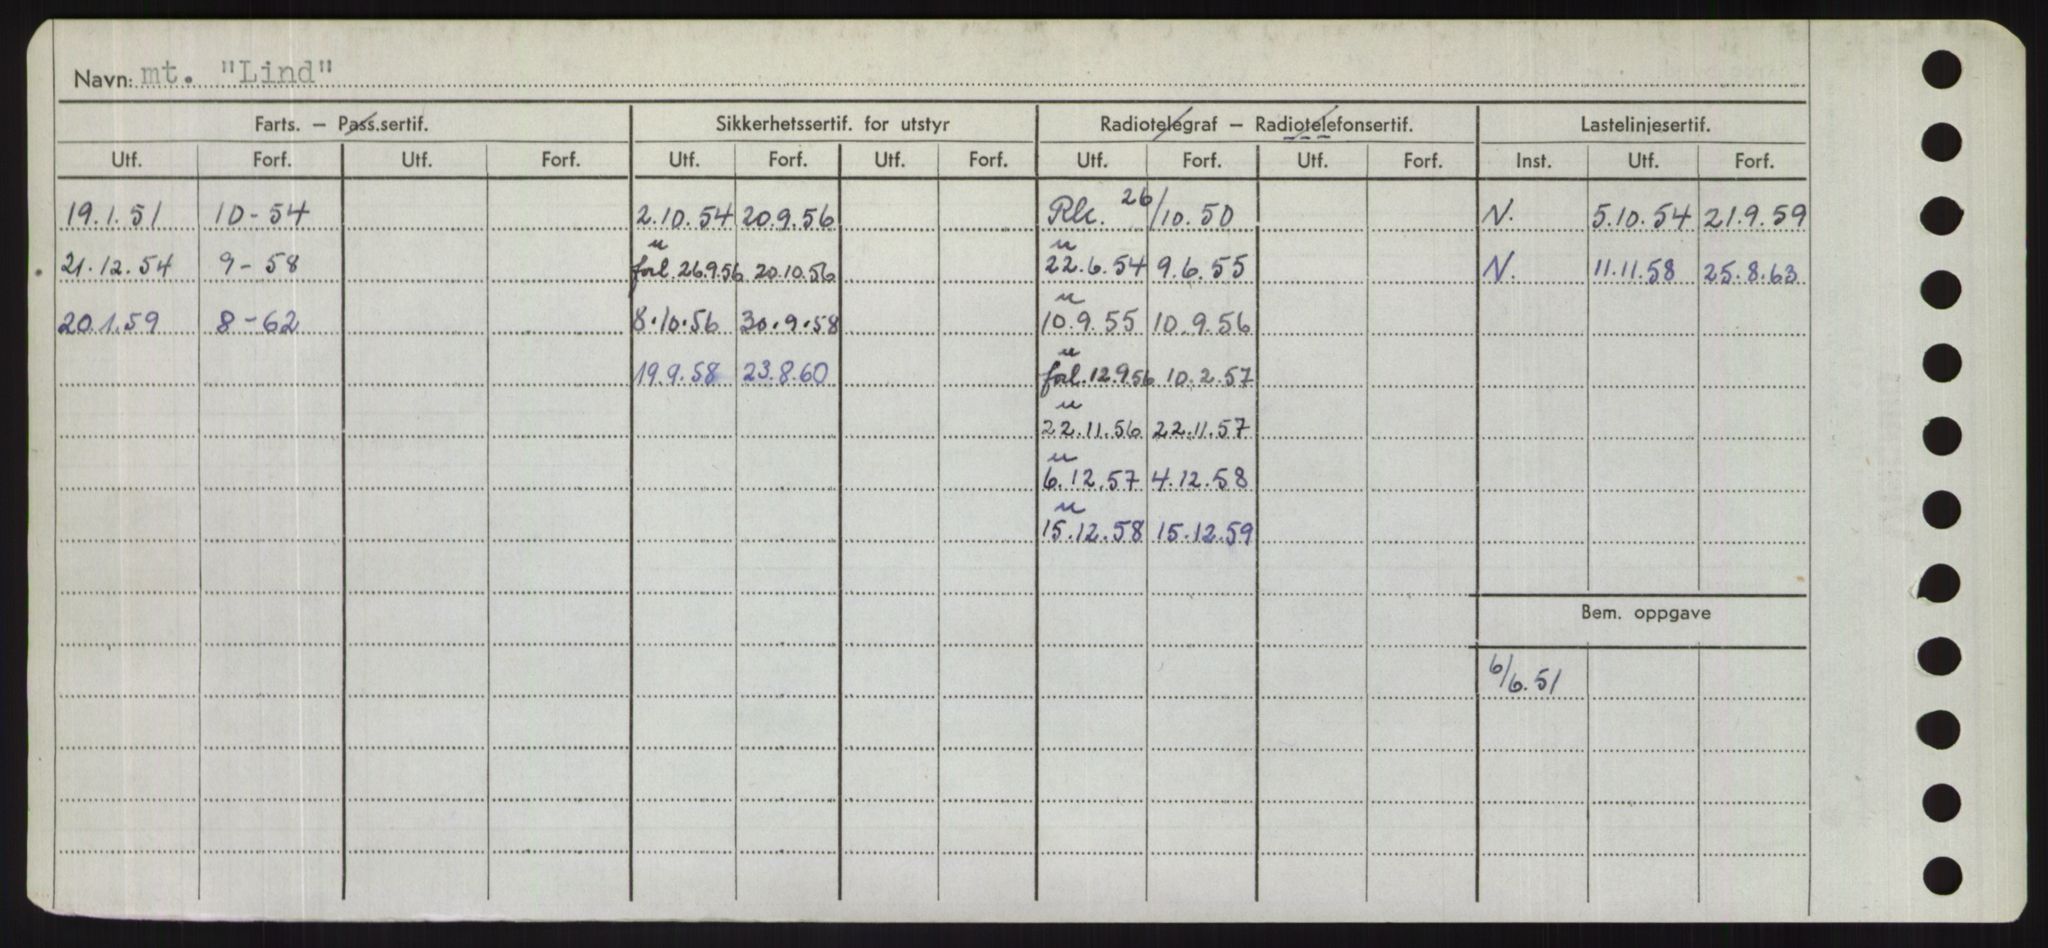 Navn: mt. "Lind"
Farts. – Pass.sertif. Sikkerhetssertif. for utstyr Radiotelegraf – Radiotelefonsertif. Lastelinjesertif.
Utf. Forf. Utf. Forf. Utf. Forf. Utf. Forf. Utf. Forf. Utf. Forf. Inst. Utf. Forf.
19.1.51 10-54 2.10.54 20.9.56 26/10.50 N. 5.10.54 21.9.59
u u
21.12.54 9-58 forl. 26.9.56 20.10.56 22.6.54 9.6.55 N. 11.11.58 25.8.63
u
20.1.59 8-62 8.10.56 30.9.58 10.9.55 10.9.56
u
19.9.58 23.8.60 forl. 12.9.56 10.2.57
u
22.11.56 22.11.57
u
6.12.57 4.12.58
u
15.12.58 15.12.59
Bem. oppgave
6/6.51